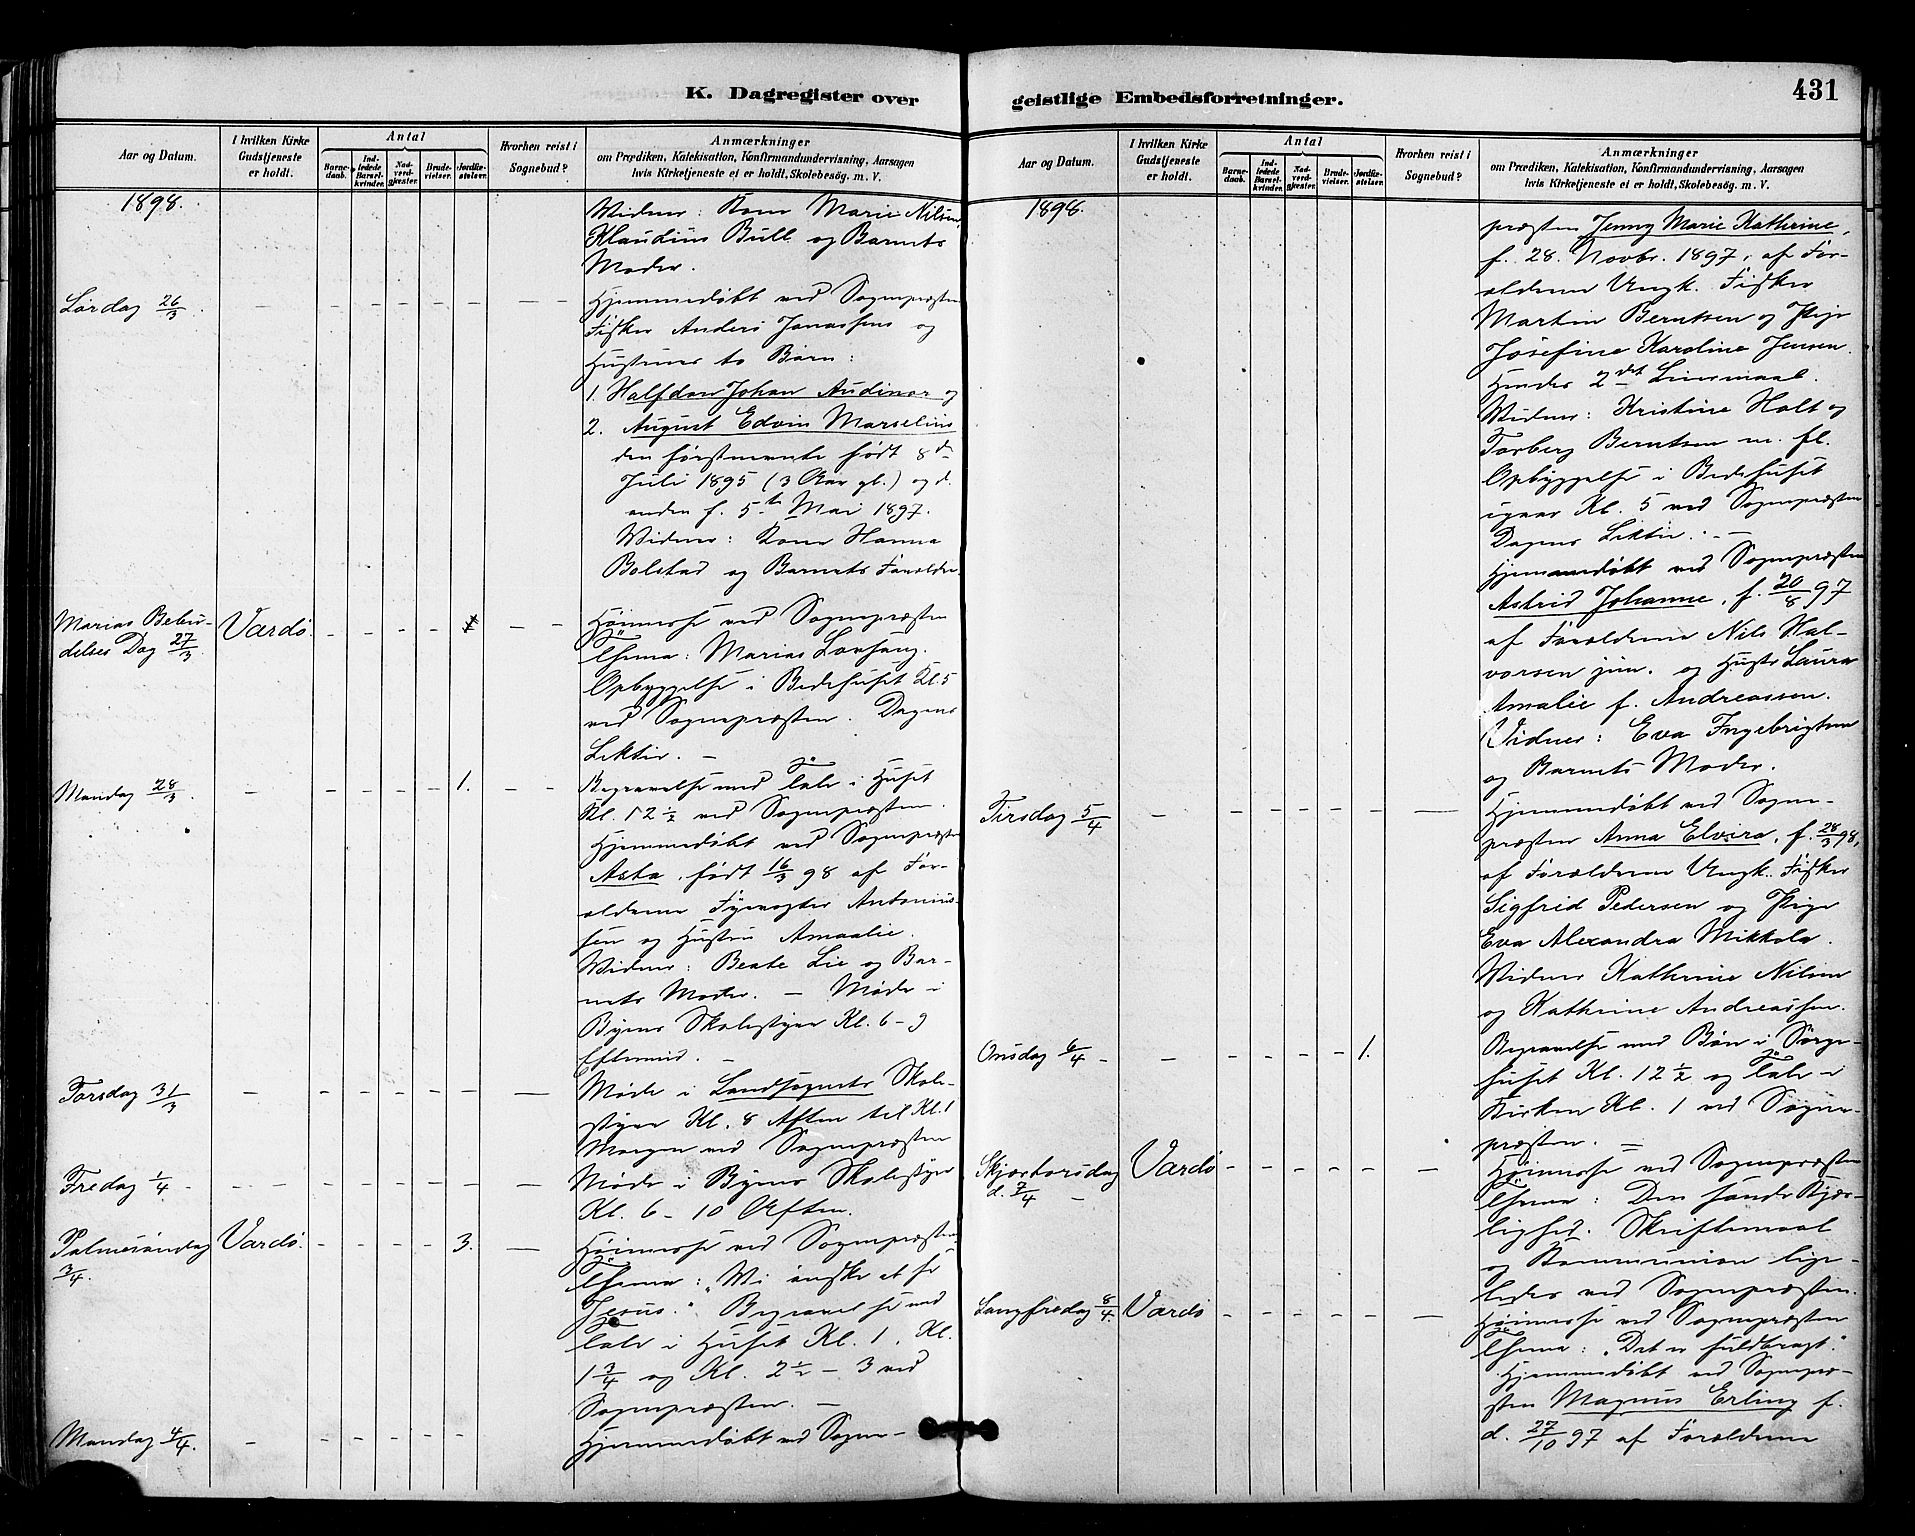 K. Dagregister over
geistlige Embedsforretninger.
431
Aar og Datum.
I hvilken Kirke
Gudstjeneste
er holdt.
Antal
Barne-
daab.
Ind-
ledede
Barsel-
kvinder.
Nad-
verd-
gjæster.
Brude-
vielser.
Jordfæ-
stelser.
Hvorhen reist i
Sognebud?
Anmærkninger
om Prædiken, Katekisation, Konfirmandundervisning, Aarsagen
hvis Kirketjeneste ei er holdt, Skolebesøg. m. V.
1898.
Vidner: Kone Marie Nilsen,
Klaudius Bull og Barnets
Moder.
Lørdag 26/3.
Hjemmedøbt ved Sognepræsten
Fisker Anders Jonassens og
Hustrues to Børn:
1. Halfdan Johan Audinor og
2. August Edvin Marselius
den førstnævnte født 8de
Juli 1895 (3 Aar gl.) og d.
anden f. 5te Mai 1897.
Vidner: Kone Hanna
Bolstad og Barnets Forældre.
Marias Bebu-
delses Dag 27/3.
Vardø.
Høimesse ved Sognepræsten
Thema: Marias Lovsang.
Opbyggelse i Bedehuset Kl. 5
ved Sognepræsten. Dagens
Lektie. -
Mandag 28/3.
1.
Begravelse med Tale i Huset
Kl. 12 1/2 ved Sognepræsten.
Hjemmedøbt ved Sognepræsten
Asta, født 16/3 98 af For-
ældrene Fyrvogter Antonius-
sen og Hustru Amaalie.
Vidner: Beate Lie og Bar-
nets Moder. - Møde i
Byens Skolestyre Kl. 6-9
Eftermid. -
Torsdag 31/3
Møde i Landsognets Skole-
styre Kl. 8 Aften til Kl. 1
Morgen ved Sognepræsten
Fredag 1/4 -
Møde i Byens Skolestyre
Kl. 6 - 10 Aften.
Palmesøndag
3/4.
Vardø.
3.
Høimesse ved Sognepræsten.
Thema: "Vi ønske at se
Jesus." Begravelse med
Tale i Huset Kl. 1, Kl.
1 3/4 og Kl. 2 1/2 - 3 ved
Sognepræsten. -
Mandag 4/4.
Hjemmedøbt ved Sogne-
Aar og Datum.
I hvilken Kirke
Gudstjeneste
er holdt.
Antal
Barne-
daab.
Ind-
ledede
Barsel-
kvinder.
Nad-
verd-
gjæster.
Brude-
vielser.
Jordfæ-
stelser.
Hvorhen reist i
Sognebud?
Anmærkninger
om Prædiken, Katekisation, Konfirmandundervisning, Aarsagen
hvis Kirketjeneste ei er holdt, Skolebesøg. m. V.
1898.
præsten Jenny Marie Kathrine,
f. 28. Novbr. 1897, af For-
ældrene Ungk. Fisker
Martin Berntsen og Pige
Josefine Karoline Jensen.
Hendes 2det Leiermaal.
Vidner: Kristine Holt og
Torberg Berntsen m. fl.
Opbyggelse i Bedehuset
igaar Kl. 5 ved Sognepræsten
Dagens Lektie. -
Hjemmedøbt ved Sognepræsten
Astrid Johanne, f. 20/8 97
af Forældrene Nils Hal-
vorsen jun. og Hustr. Laura
Amalie f. Andreassen.
Vidner: Eva Ingebrigtsen
og Barnets Moder.
Tirsdag 5/4
Hjemmedøbt ved Sogne-
præsten Anna Elvira, f. 28/3 98,
af Forældrene Ungk. Fisker
Sigfrid Pedersen og Pige
Eva Alexandra Mikkola.
Vidner Kathrine Nilsen
og Kathrine Andreassen.
Onsdag 6/4 -
1.
Begravelse med Bøn i Sørge-
huset Kl. 12 1/2 og Tale i
Kirken Kl. 1 ved Sogne-
præsten. =
Skjærtorsdag
d. 7/4
Vardø
Høimesse ved Sognepræsten
Thema: Den sande Kjær-
lighed. Skriftemaal
og Kommunion lige-
ledes ved Sognepræsten.
Langfredag 8/4.
Vardø
Høimesse ved Sognepræsten
Thema: "Det er fuldbragt".
Hjemmedøbt ved Sognepræ-
sten Magnus Erling f.
d. 27/10 97 af Forældrene